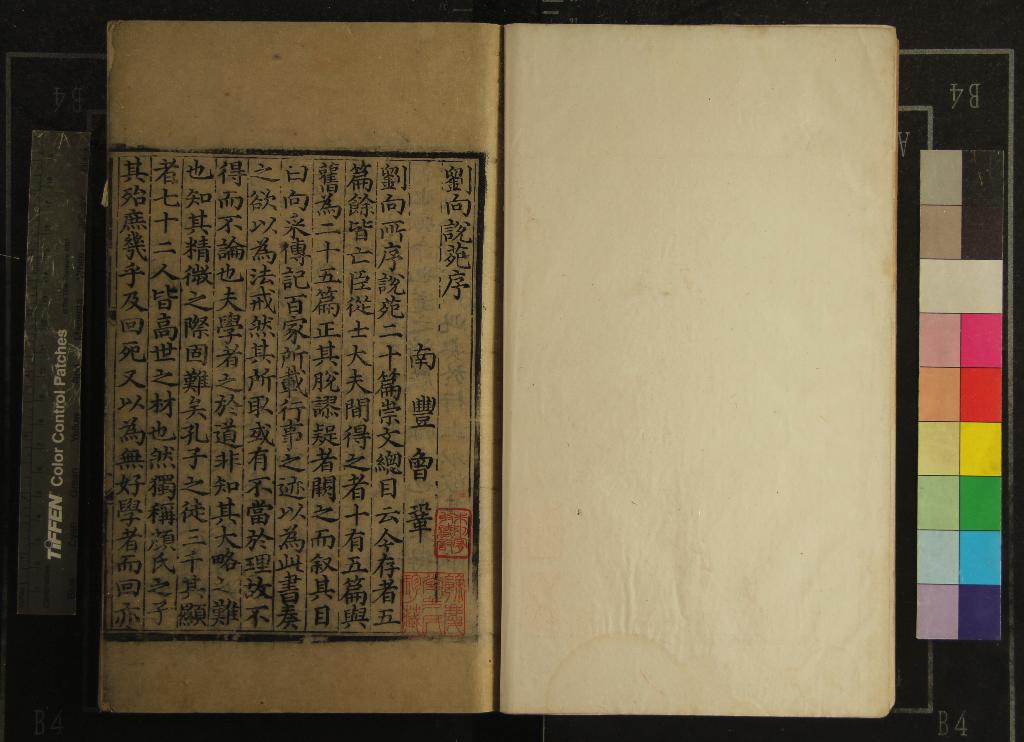 劉向說苑序
南豐曾鞏
劉向所序說苑二十篇崇文總目云今存者五
篇餘皆亡臣從士大夫間得之者十有五篇與
舊為二十五篇正其脫謬疑者闕之而叙其目
曰向采傳記百家所載行事之迹以為此書奏
之欲以為法戒然其所取或有不當於理故不
得而不論也夫學者之於道非知其大略之難
也知其精微之際固難矣孔子之徒三千其顯
者七十二人皆高世之材也然獨稱顏氏之子
其殆庶幾乎及回死又以為無好學者而回亦
TIFFEN Color Control Patches
B4
B4
B4
B4
A